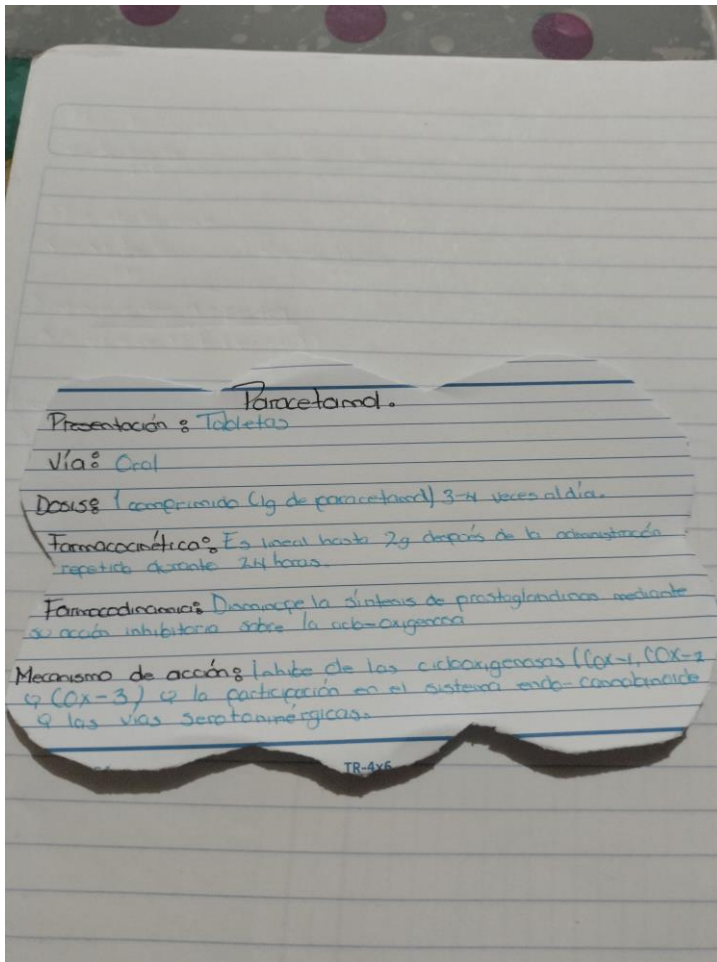 Paracetamol.
Presentación: Tabletas
Vía: Oral
Dosis: 1 comprimido (1g de paracetamol) 3-4 veces al día.
Farmacocinética: Es lineal hasta 2g después de la administración
repetida durante 24 horas.
Farmacodinamia: Disminuye la síntesis de prostaglandinas mediante
su acción inhibitoria sobre la ciclo-oxigenasa
Mecanismo de acción: Inhibe de las ciclooxigenasas (Cox-1, COX-2
y COX-3) y la participación en el sistema endo-cannabinoide
y las vías serotaninérgicas.
TR-4x6